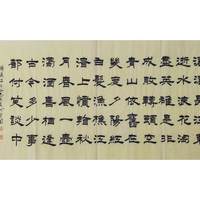 滾滾長江東
逝水浪花淘
盡英雄是非
成敗轉頭空
青山依舊在
幾度夕陽紅
白髮漁樵江
渚上慣看秋
月春風一壺
濁酒喜相逢
古今多少事
都付笑談中